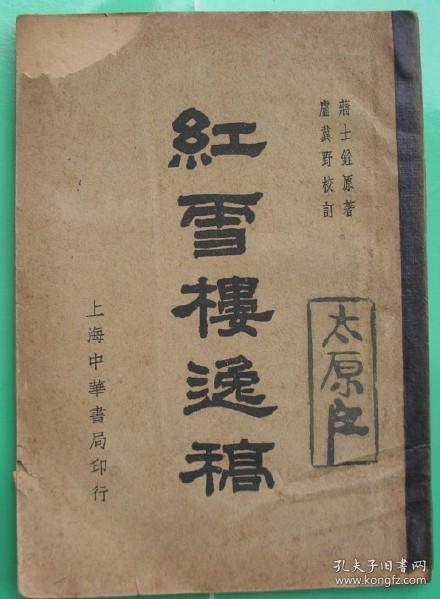 蔣士銓原著
盧冀野校訂
紅雪樓逸稿
上海中華書局印行
太原
孔夫子旧书网
www.kongfz.com